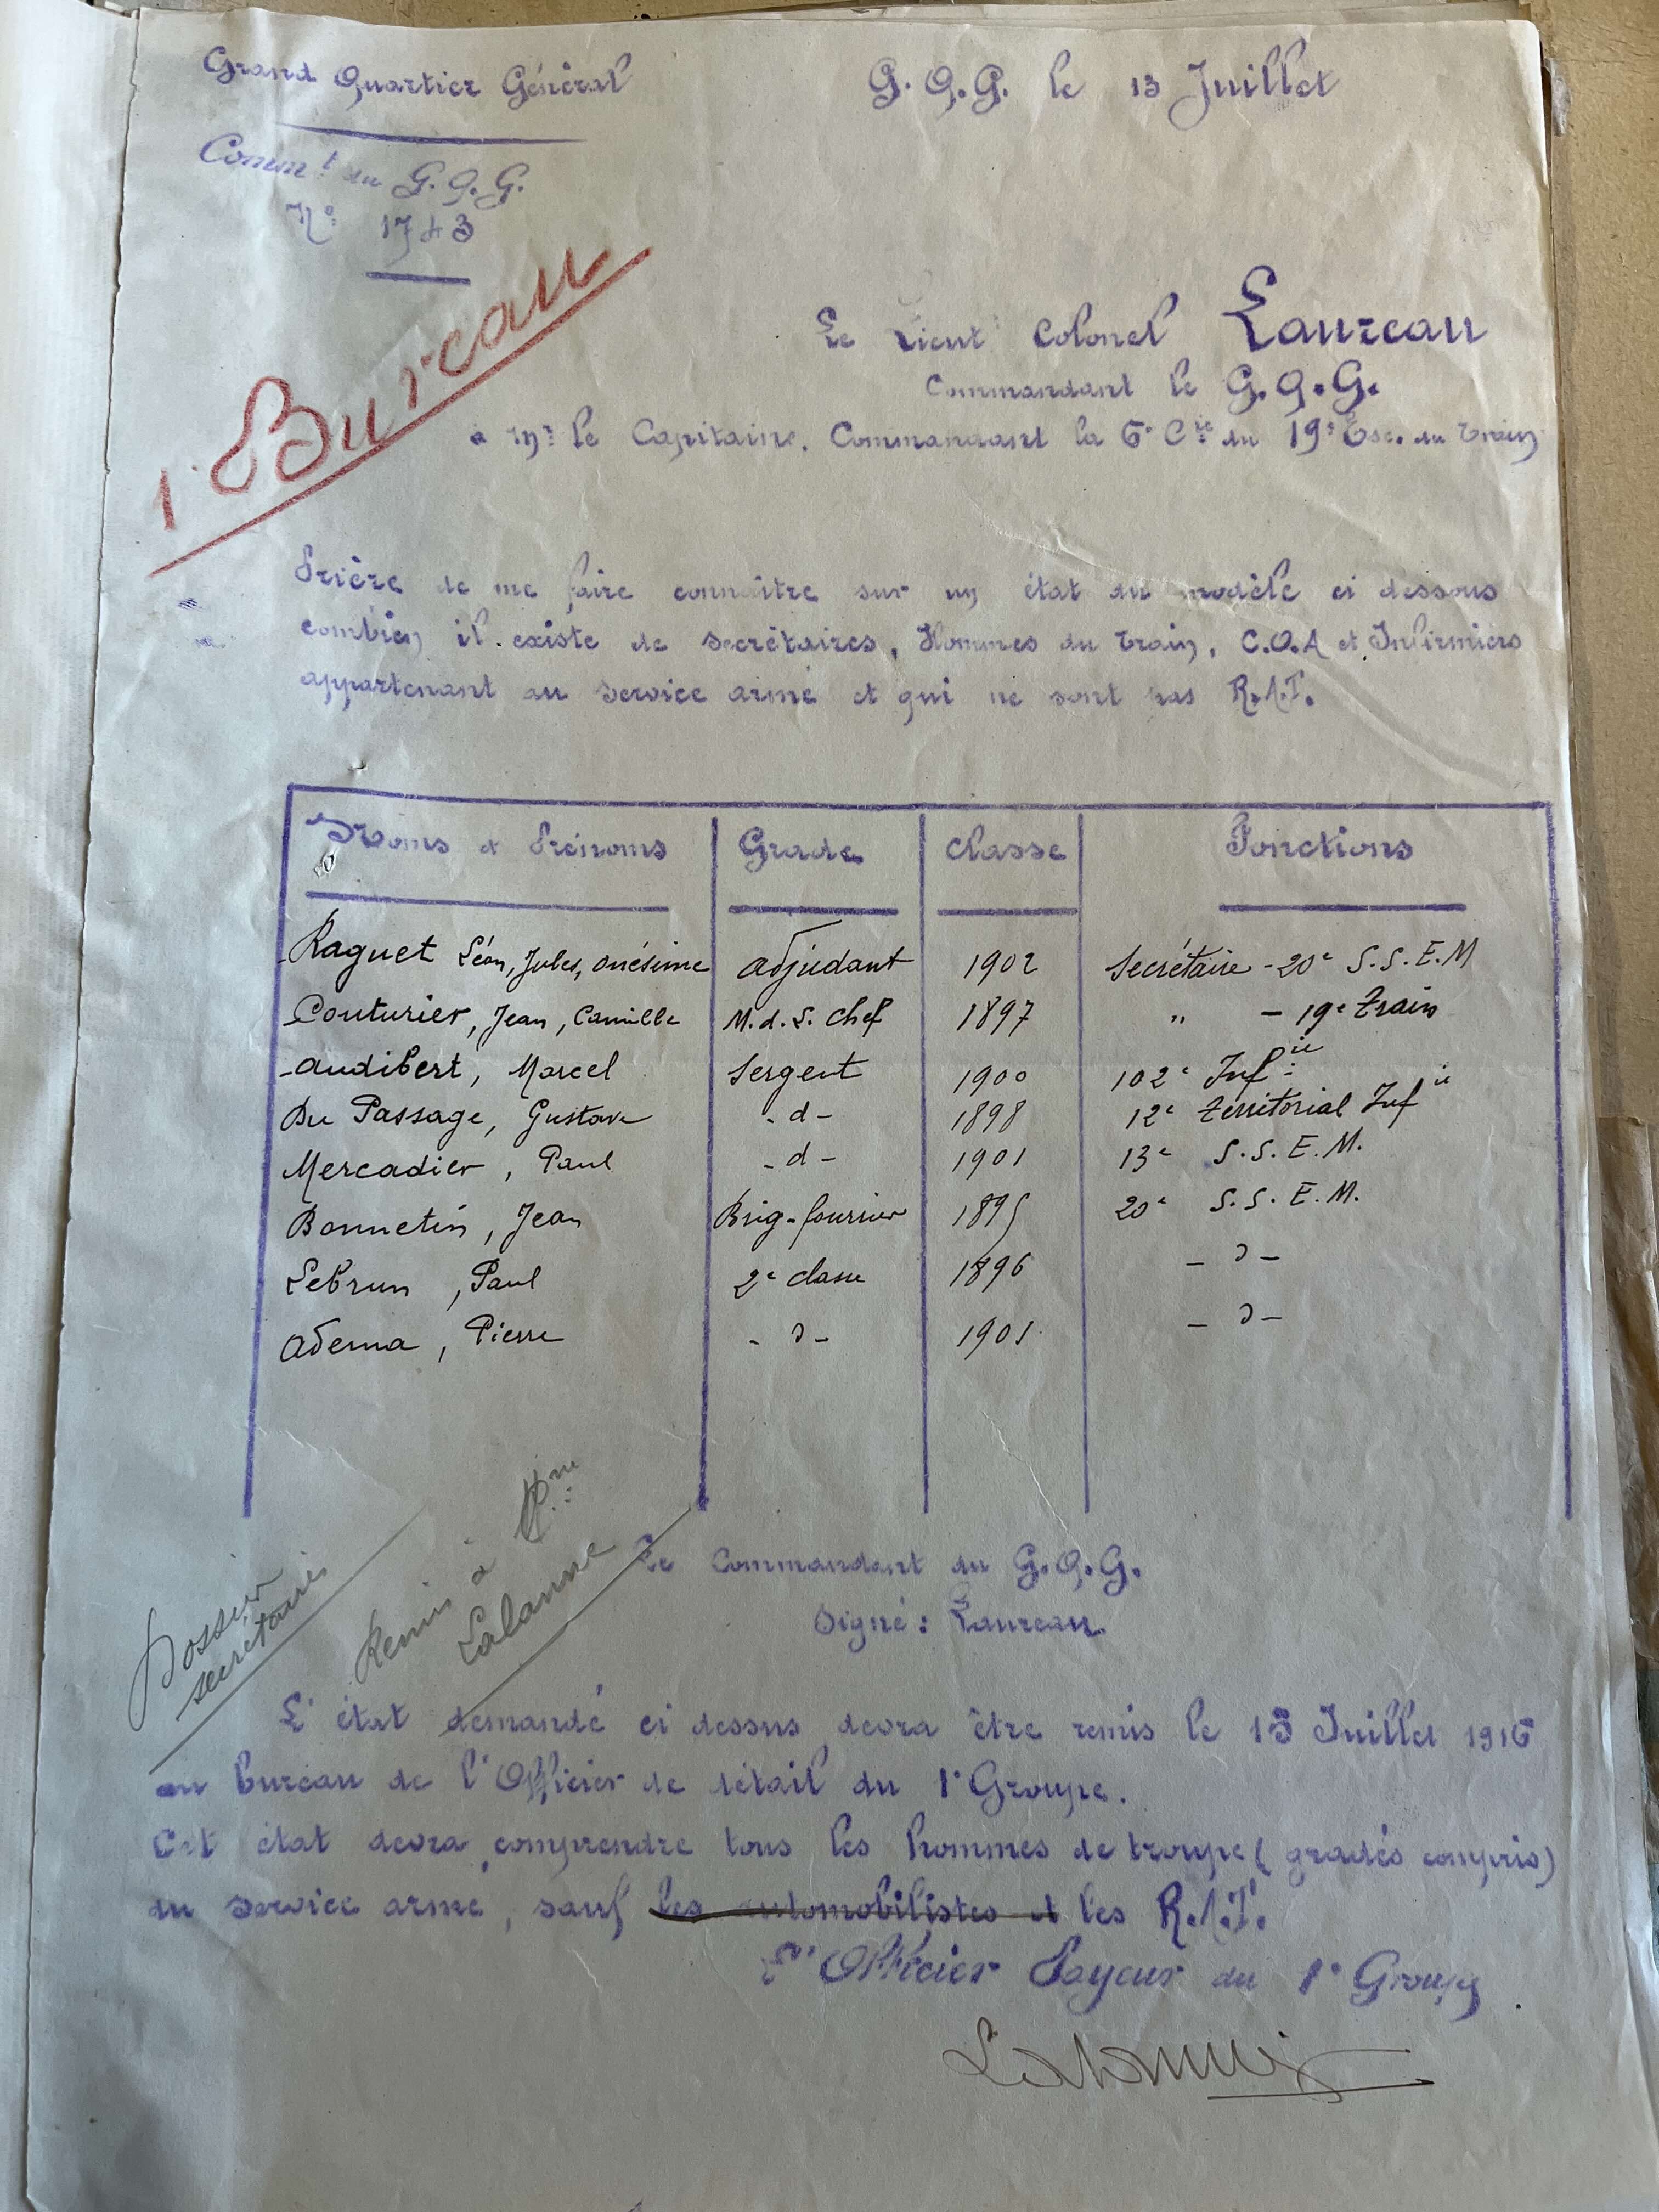 Grand Quartier Général
G. Q. G. le 13 Juillet
Comm.t du G. Q. G.
N° 1743
1er Bureau
Le Lieut Colonel Laureau
Commandant le G. Q. G.
à Mr le Capitaine, Commandant la 6e Cie du 19e Esc. du Train
Prière de me faire connaître sur un état du modèle ci dessous
combien il existe de secrétaires, Hommes du train, C.O.A et Infirmiers
appartenant au service armé et qui ne sont pas R.A.T.
Noms et Prénoms Grade Classe Fonctions
Raguet Léon, Jules, Onésime Adjudant 1902 Secrétaire - 20e S.S.E.M
Couturier, Jean, Camille M.d.L. Chef 1897 " - 19e Train
Audibert, Marcel Sergent 1900 102e Inf.ie
Du Passage, Gustave - d - 1898 12e Territorial Inf.ie
Mercadier, Paul - d - 1901 13e S.S.E.M.
Bonnetin, Jean Brig-fourrier 1895 20e S.S.E.M.
Lebrun, Paul 2e classe 1896 - d -
Adema, Pierre - d - 1901 - d -
Dossier secrétaires
Remis à
Lalanne
Le Commandant du G. Q. G.
Signé : Laureau
L'état demandé ci dessus devra être remis le 15 Juillet 1916
au bureau de l'Officier de détail du 1er Groupe.
Cet état devra comprendre tous les hommes de troupe (gradés compris)
du service armé, sauf les automobilistes et les R.A.T.
L'Officier Payeur du 1er Groupe
Lalanne